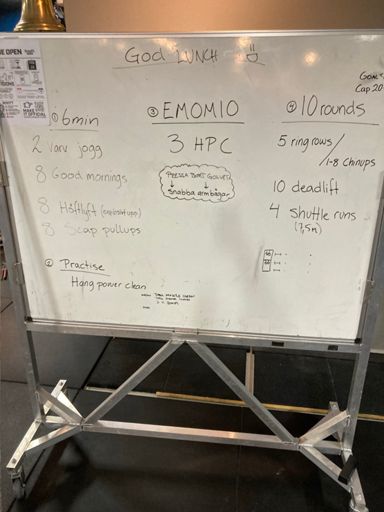 God LUNCH
① 6min
2 varv jogg
8 Good mornings
8 Höftlyft
8 Scap pullups
② Practise
Hang power clean
③ EMOM10
3 HPC
PRESSA BORT GOLVET
Snabba armbågar
④ 10 rounds
5 ring rows /
1-8 chinups
10 deadlift
4 shuttle runs
(7,5m)
Cap 20
E OPEN
MAKE IT
OFFICIAL